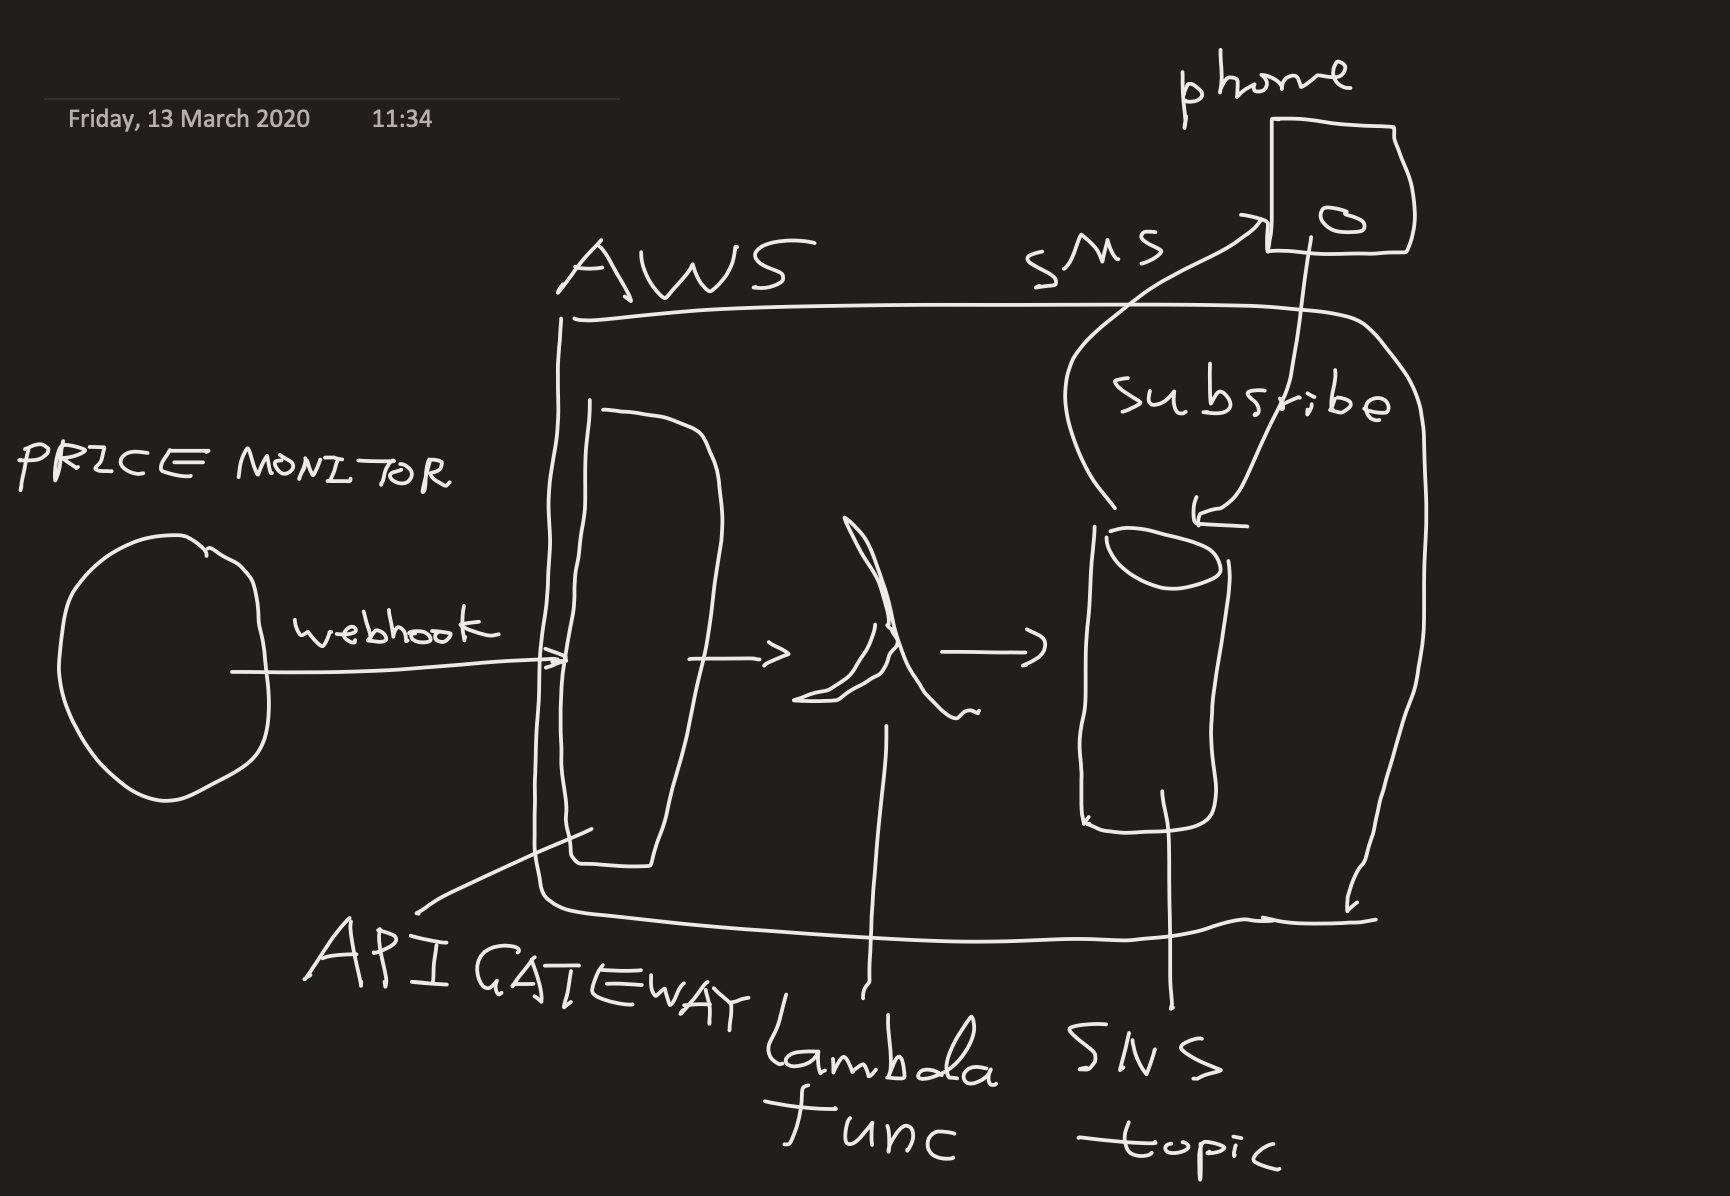 Friday, 13 March 2020 11:34
phone
AWS
SMS
subsribe
PRICE MONITOR
webhook
API GATEWAY
lambda
func
SNS
topic